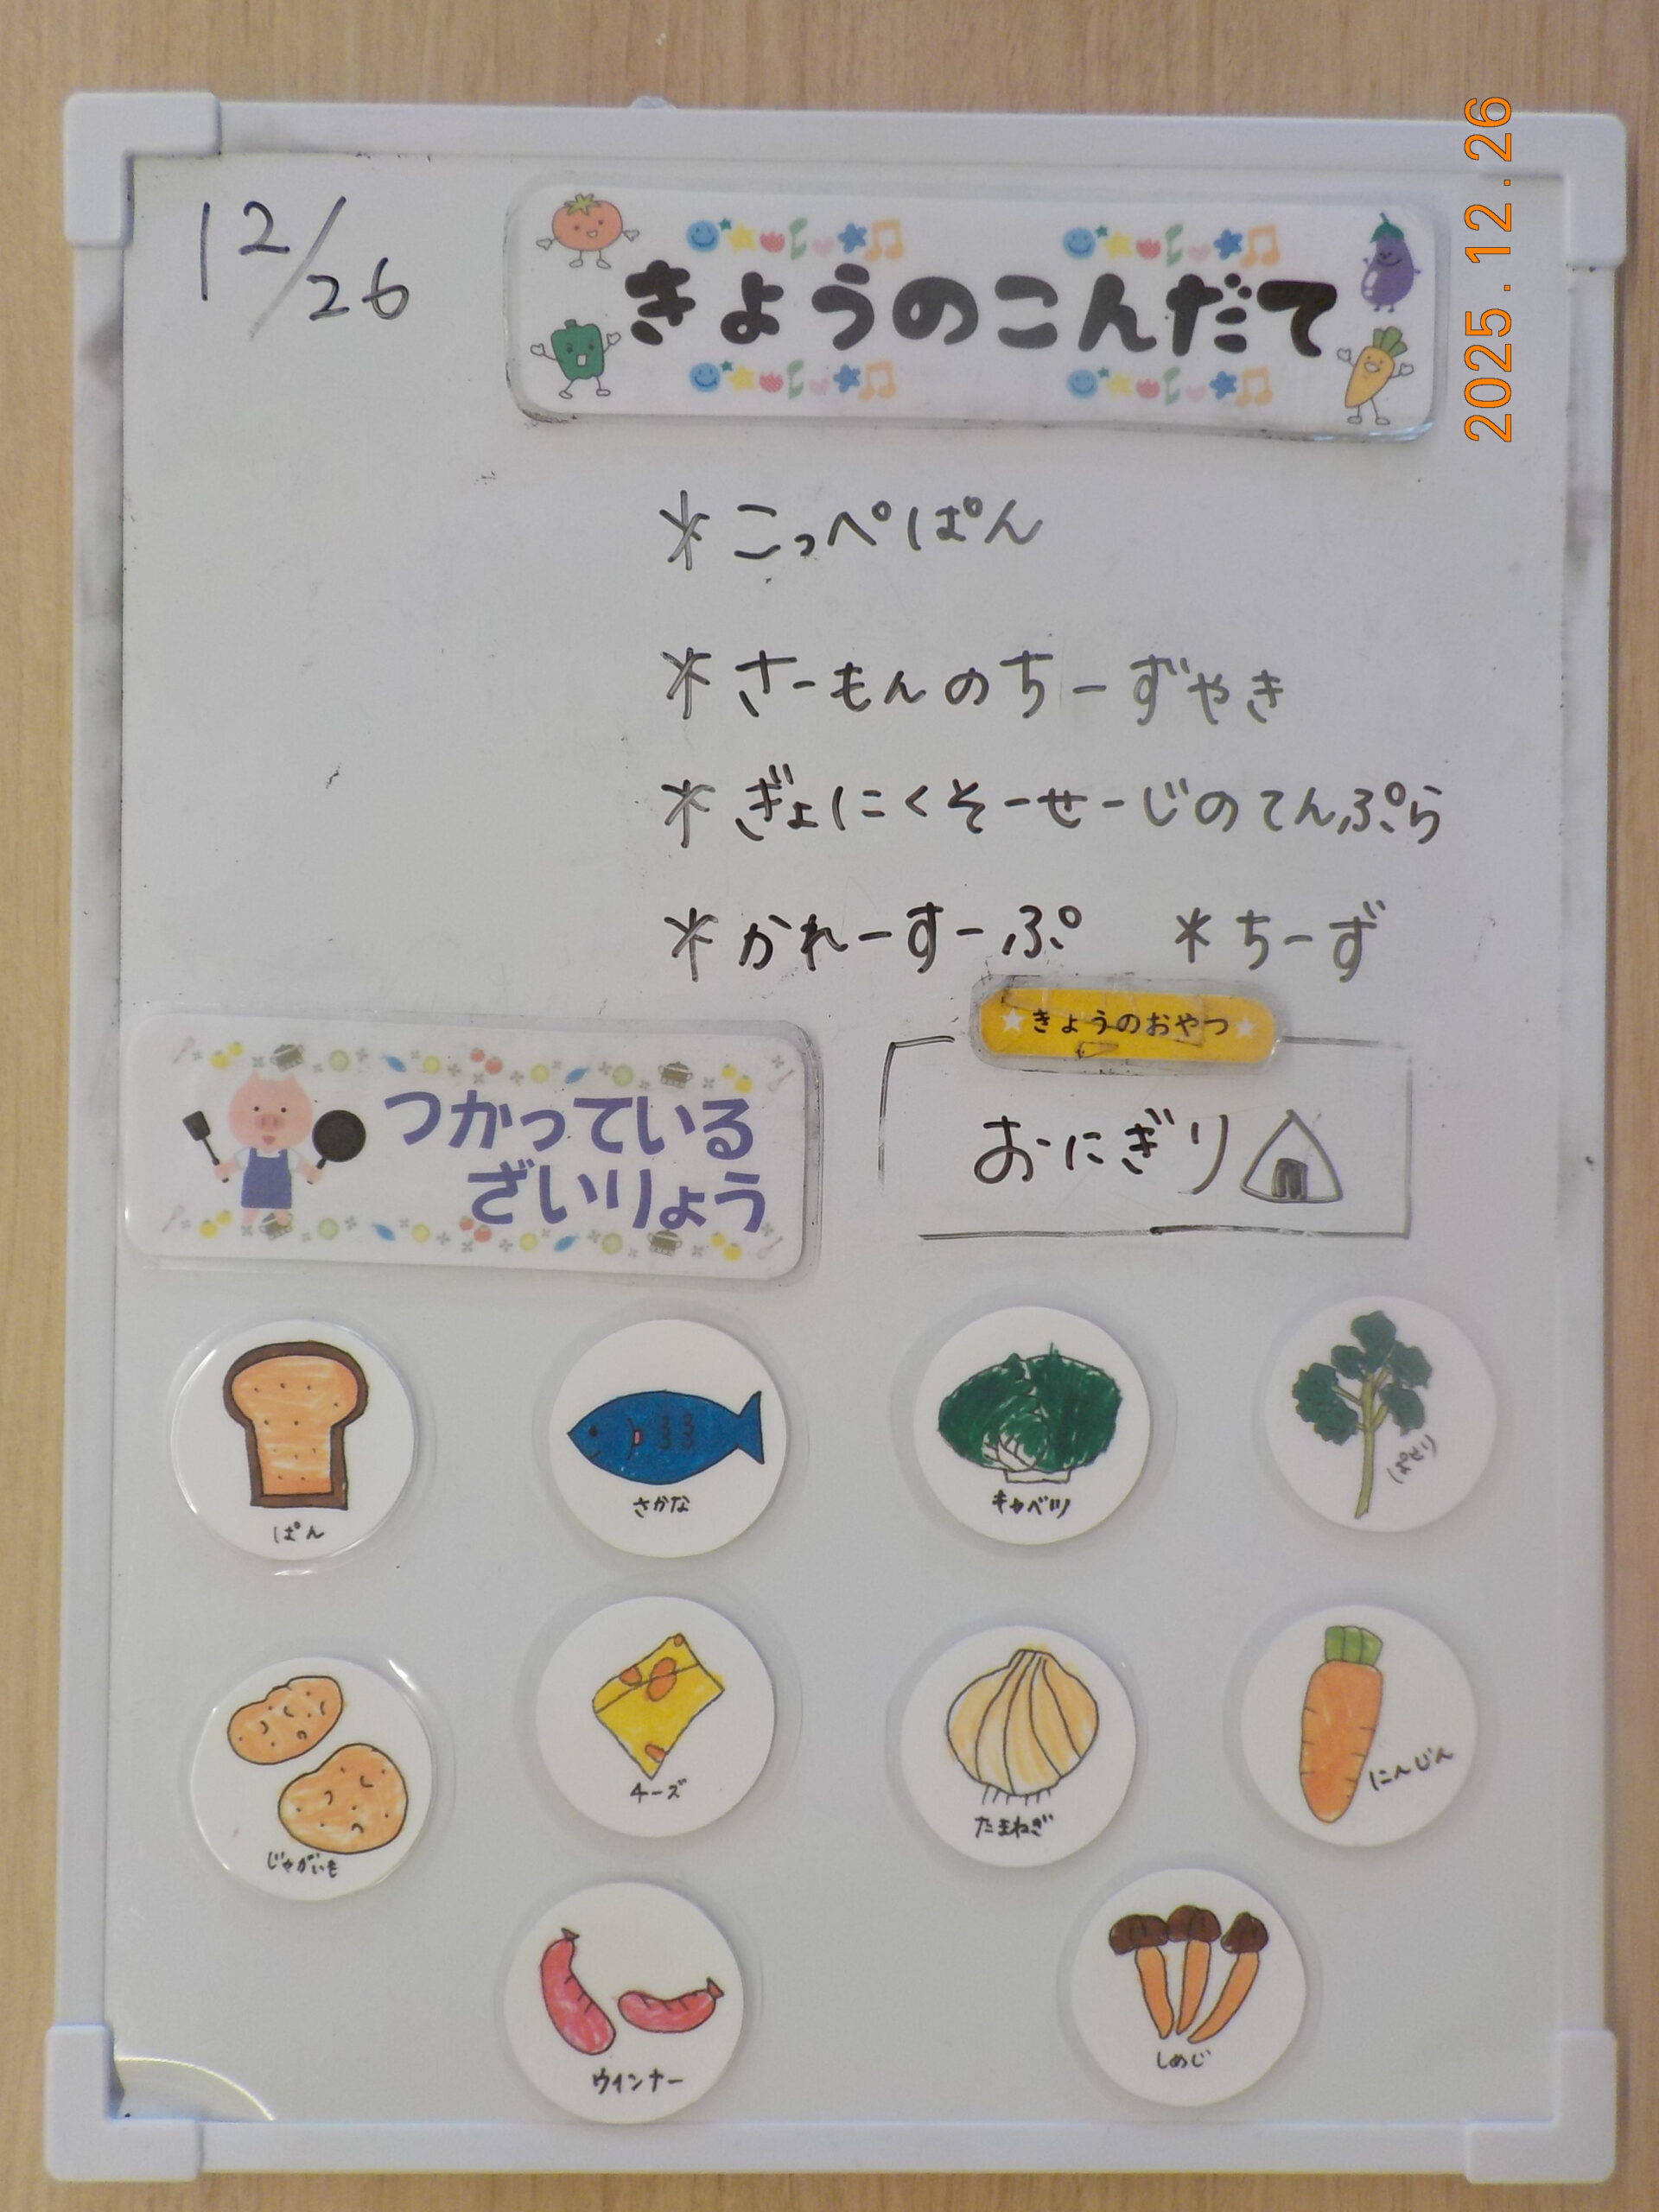 12/26
きょうのこんだて
2025.12.26
*こっぺぱん
*さーもんのちーずやき
*ぎょにくそーせーじのてんぷら
*かれーすーぷ *ちーず
つかっている
ざいりょう
★きょうのおやつ★
おにぎり
ぱん
さかな
キャベツ
ぱせり
じゃがいも
チーズ
たまねぎ
にんじん
ウインナー
しめじ